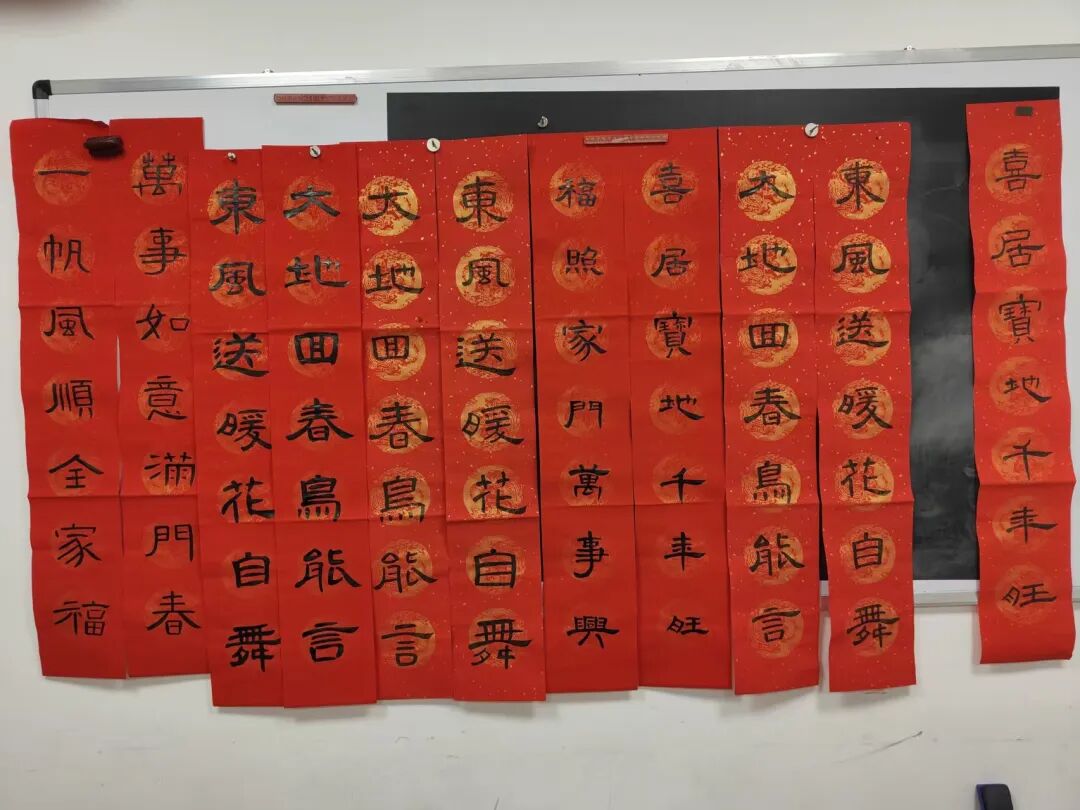 喜居寶地千年旺
東風送暖花自舞
大地回春鳥能言
喜居寶地千年旺
福照家門萬事興
東風送暖花自舞
大地回春鳥能言
大地回春鳥能言
東風送暖花自舞
萬事如意滿門春
一帆風順全家福